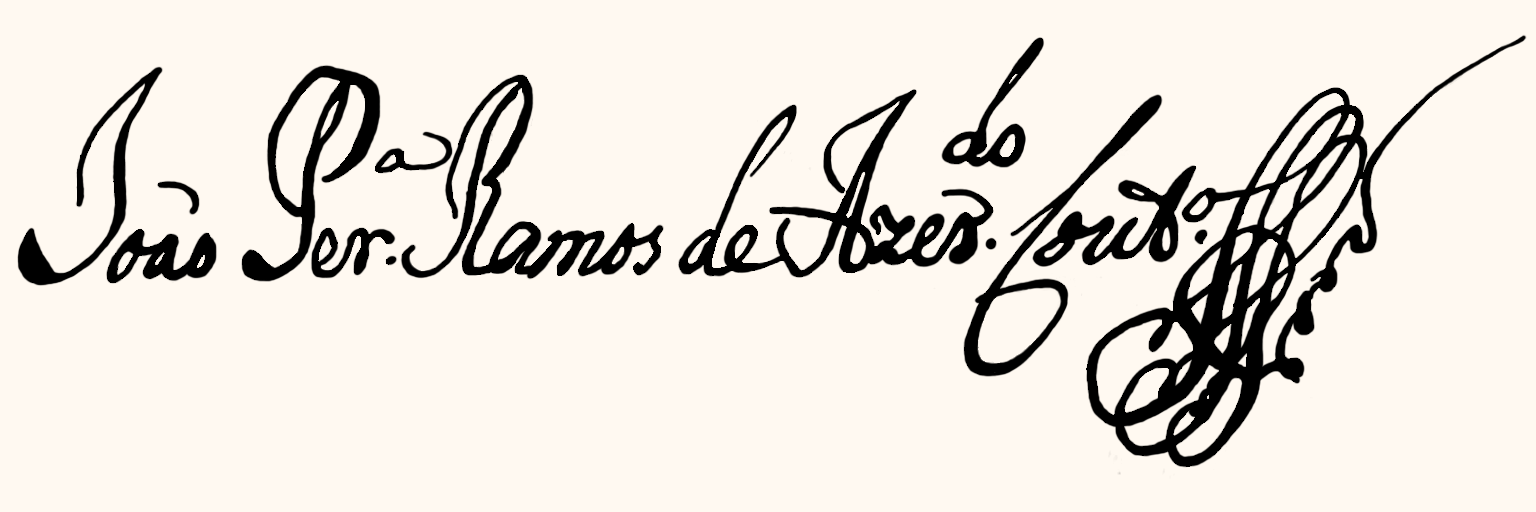 João Per.ª Ramos de Azer.do Cout.º